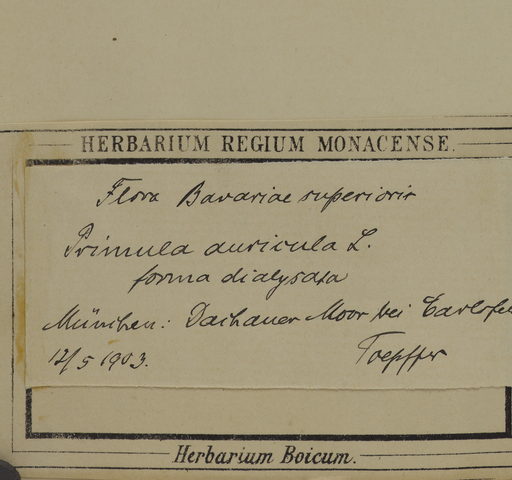 HERBARIUM REGIUM MONACENSE.
Flora Bavariae superioris
Primula auricula L.
forma dialysata
München: Dachauer Moor bei Carlsfel
12/5 1903. Toepffer
Herbarium Boicum.